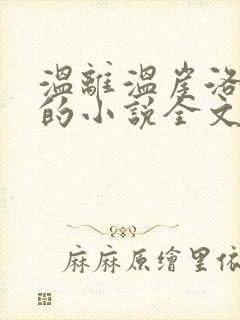 溫離溫崖洛
的小說全文
麻麻原繪里依